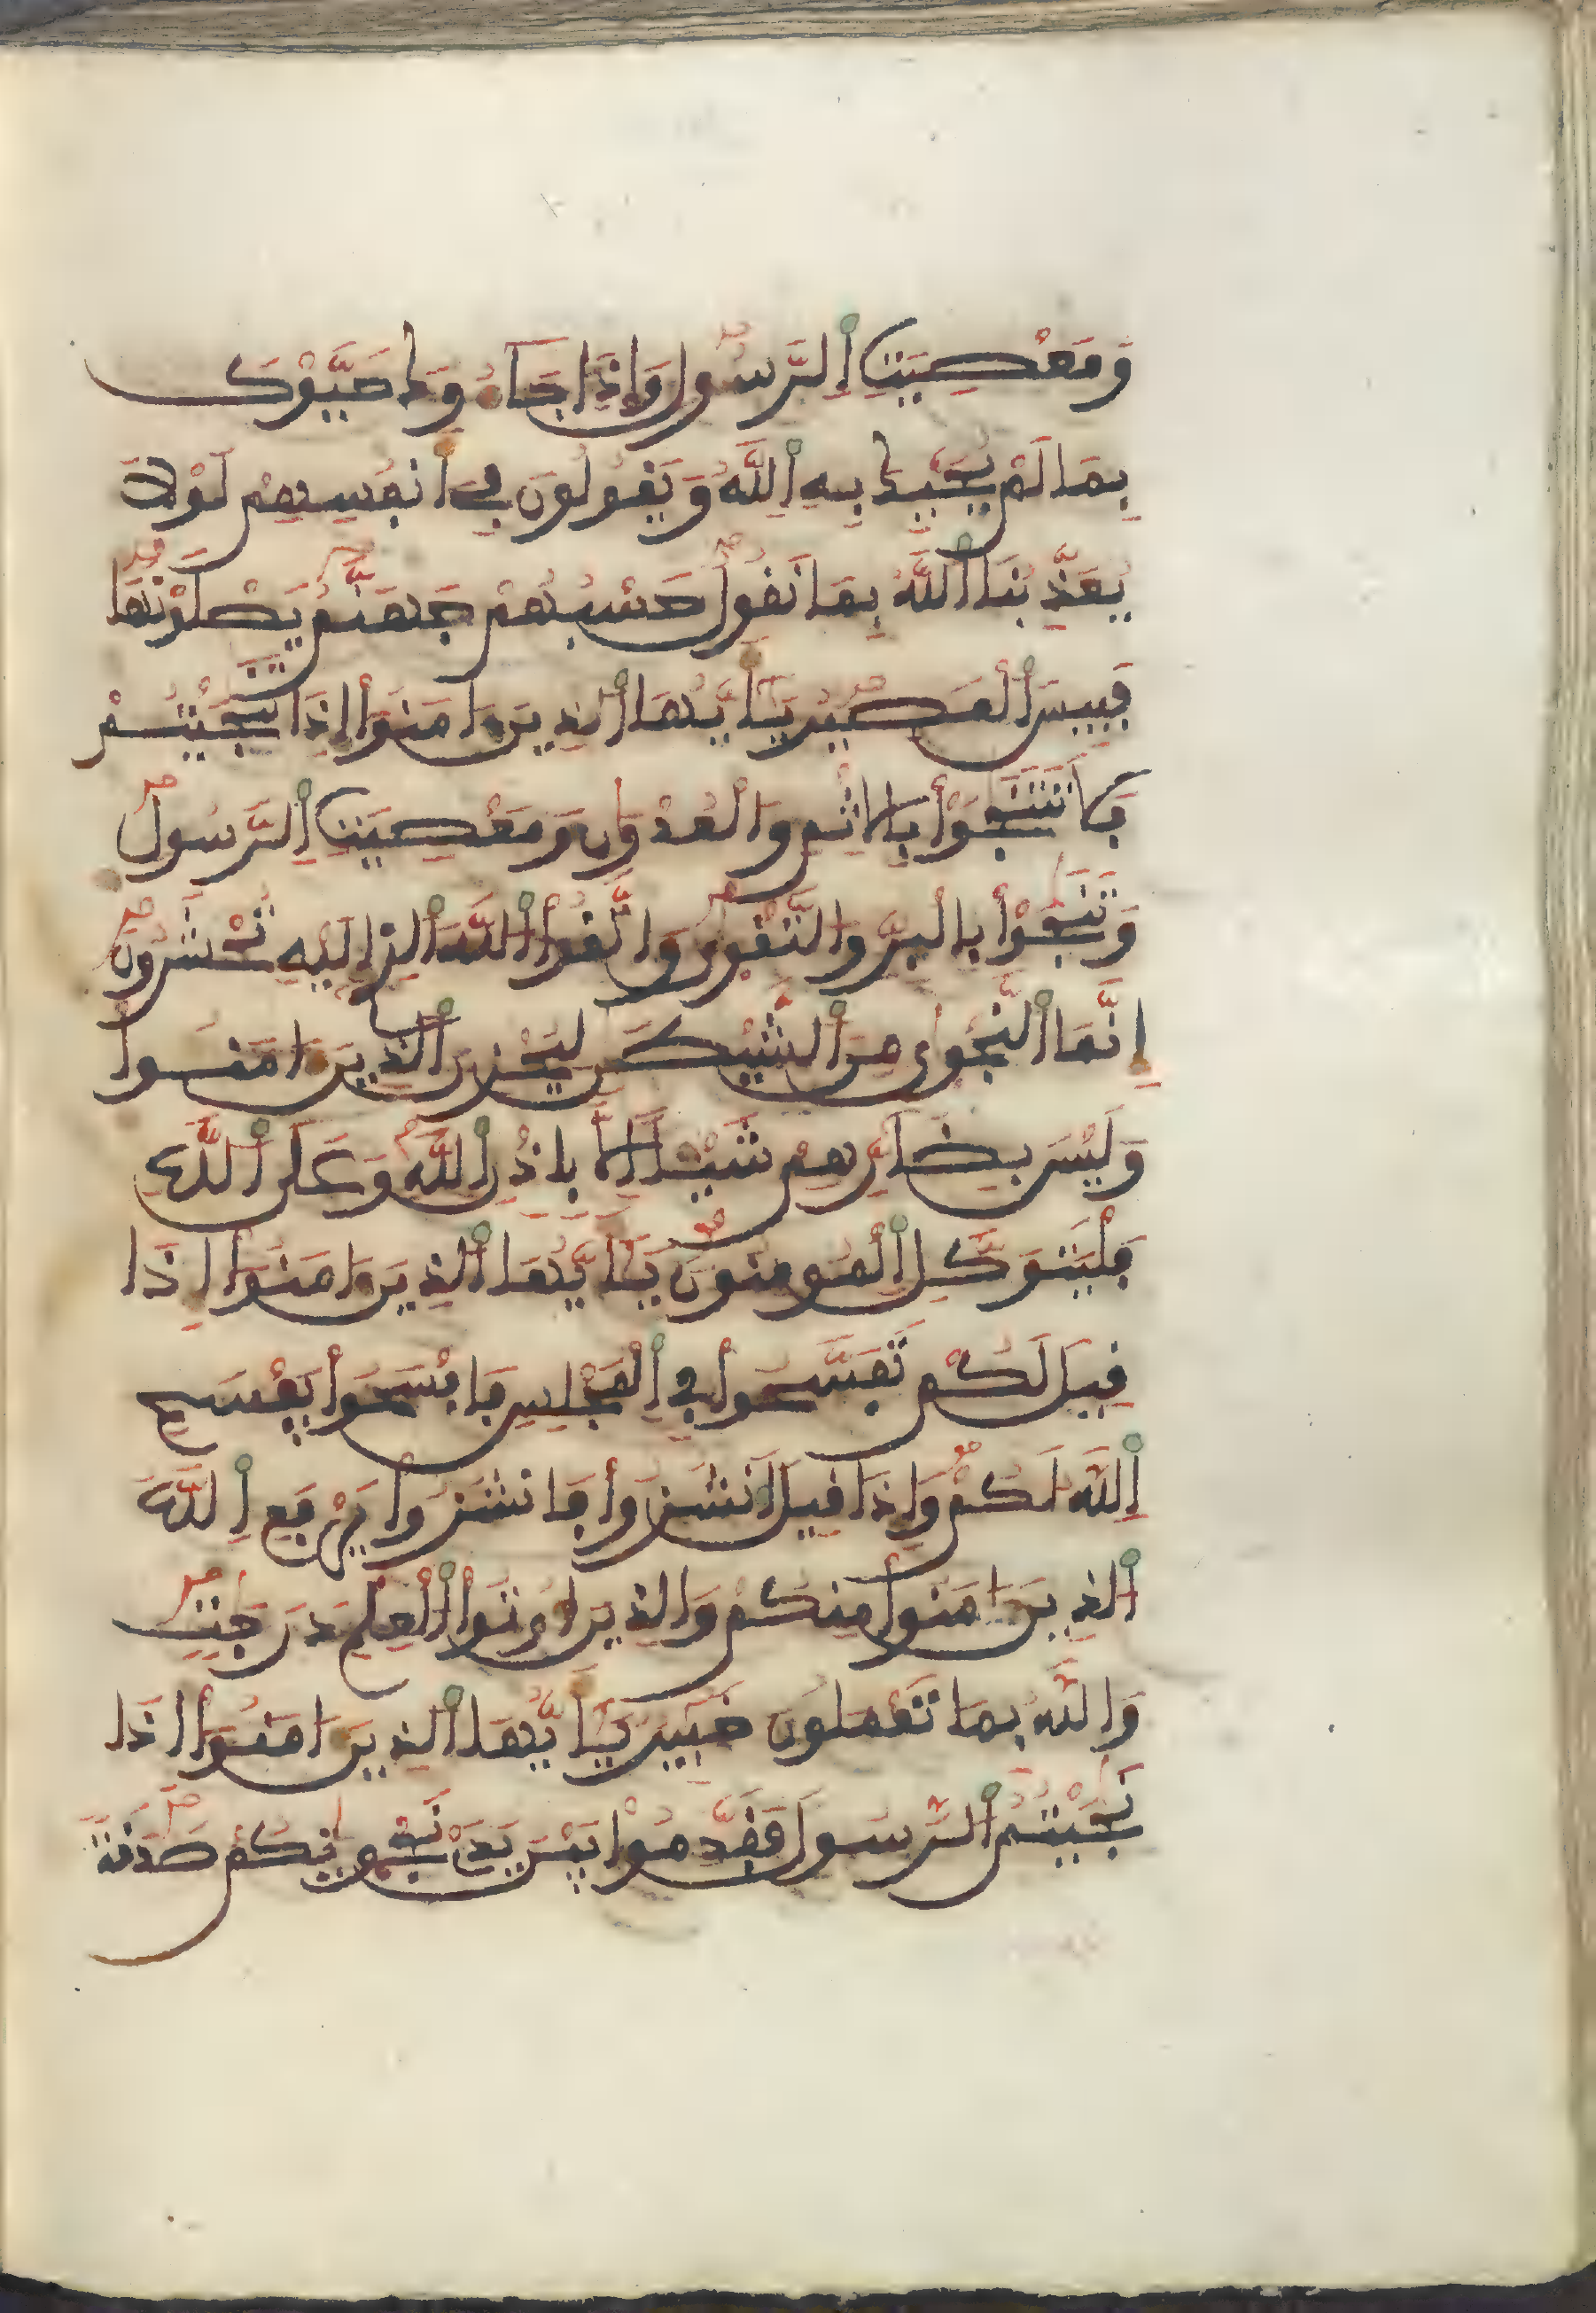 وَمَعْصِيَتِ اِ۬لرَّسُولِ وَإِذَا جَآءُوكَ حَيَّوْكَ
بِمَا لَمْ يُحَيِّكَ بِهِ اِ۬للَّهُ وَيَقُولُونَ فِےٓ أَنفُسِهِمْ لَوْلَا
يُعَذِّبُنَا اَ۬للَّهُ بِمَا نَقُولُ حَسْبُهُمْ جَهَنَّمُ يَصْلَوْنَهَا
فَبِيسَ اَ۬لْمَصِيرُ يَٰٓأَيُّهَا اَ۬لذِينَ ءَامَنُوٓاْ إِذَا تَنَٰجَيْتُمْ
فَلَا تَتَنَٰجَوْاْ بِالِاثْمِ وَالْعُدْوَٰنِ وَمَعْصِيَتِ اِ۬لرَّسُولِ
وَتَنَٰجَوْاْ بِالْبِرِّ وَالتَّقْوٰى وَاتَّقُواْ اُ۬للَّهَ اَ۬لذِےٓ إِلَيْهِ تُحْشَرُونَ
إِنَّمَا اَ۬لنَّجْوٰى مِنَ اَ۬لشَّيْطَٰنِ لِيُحْزِنَ اَ۬لذِينَ ءَامَنُواْ
وَلَيْسَ بِضَآرِّهِمْ شَيْـٔاً اِلَّا بِإِذْنِ اِ۬للَّهِ وَعَلَى اَ۬للَّهِ
فَلْيَتَوَكَّلِ اِ۬لْمُومِنُونَ يَٰٓأَيُّهَا اَ۬لذِينَ ءَامَنُوٓاْ إِذَا
قِيلَ لَكُمْ تَفَسَّحُواْ فِے اِ۬لْمَجْلِسِ فَافْسَحُواْ يَفْسَحِ
اِ۬للَّهُ لَكُمْ وَإِذَا قِيلَ اَ۟نشُزُواْ فَانشُزُواْ يَرْفَعِ اِ۬للَّهُ
اُ۬لذِينَ ءَامَنُواْ مِنكُمْ وَالذِينَ أُوتُواْ اُ۬لْعِلْمَ دَرَجَٰتٖ
وَاللَّهُ بِمَا تَعْمَلُونَ خَبِيرٞ يَٰٓأَيُّهَا اَ۬لذِينَ ءَامَنُوٓاْ إِذَا
نَٰجَيْتُمُ اُ۬لرَّسُولَ فَقَدِّمُواْ بَيْنَ يَدَےْ نَجْوٰيكُمْ صَدَقَةٗ